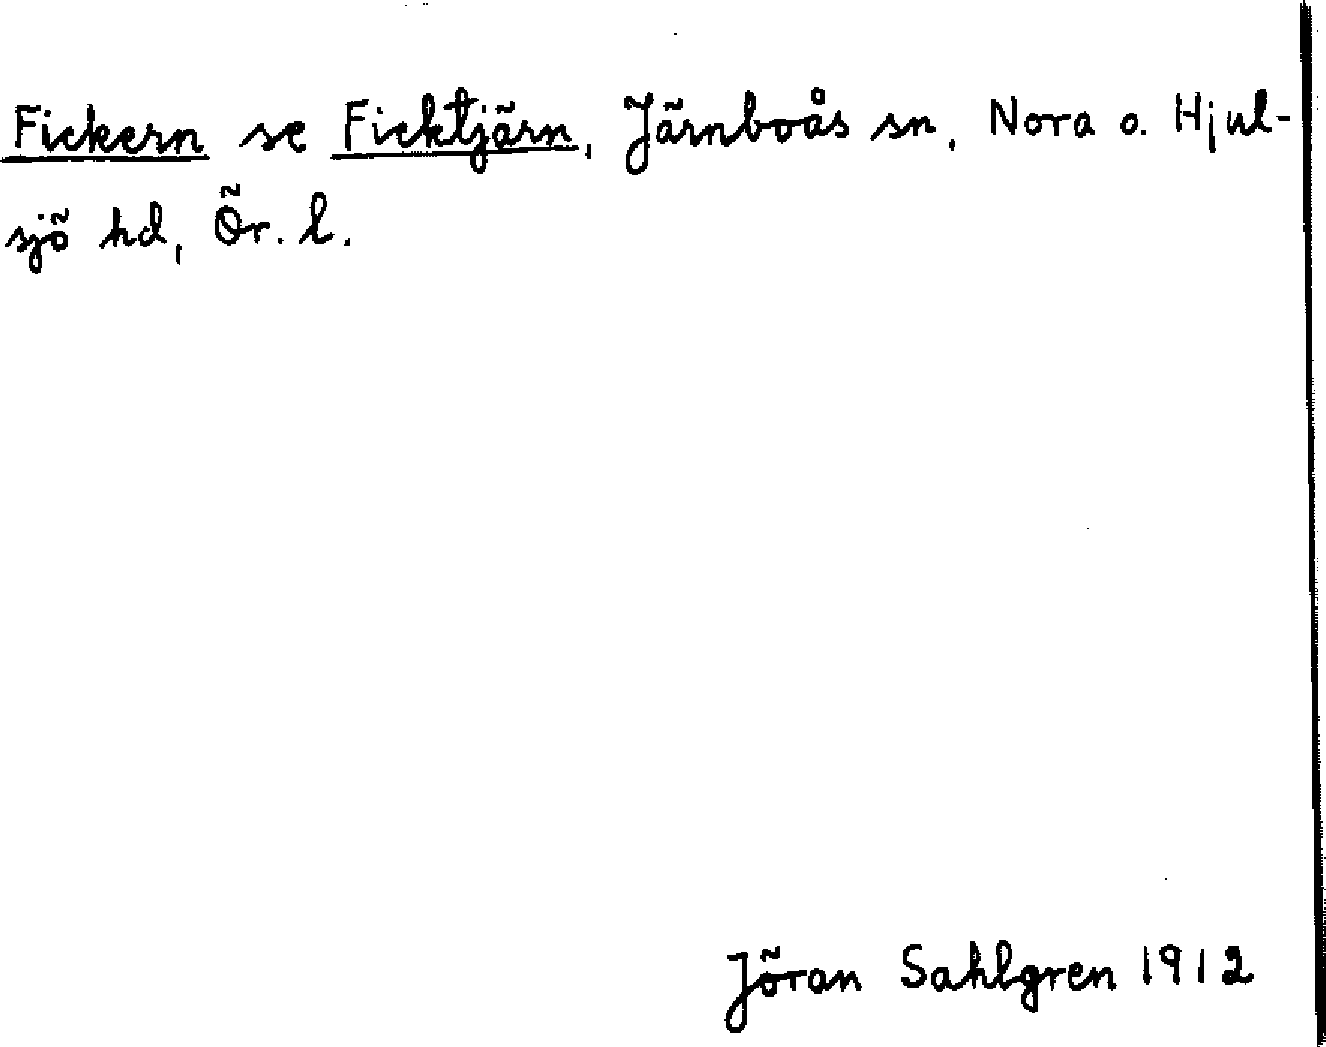 Fickern se Ficktjärn, Järnboås sn, Nora o. Hjul-
sjö hd, Ör. l.
Jöran Sahlgren 1912